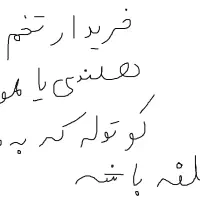 خریدار تخم
هلندی یا لمو
کوتوله که به
لفه باشه